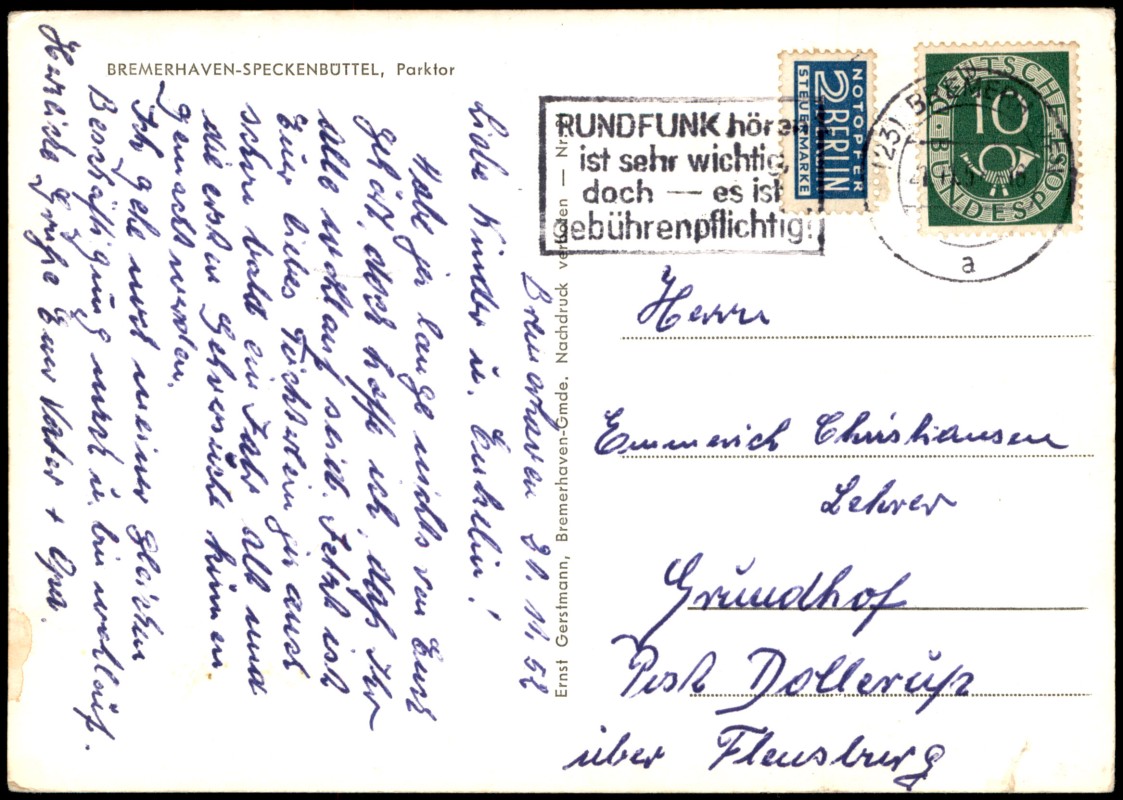 BREMERHAVEN-SPECKENBÜTTEL, Parktor
Bremerhaven 21.11.52
Liebe Kinder u. Enkelin!
Habe ja lange nichts von Euch
gehört, doch hoffe ich, daß Ihr
alle wohlauf seid. Jetzt ist
Euer liebes Töchterlein ja auch
schon bald ein Jahr alt und
die ersten Gehversuche können
gemacht werden.
Ich gehe noch meiner gleichen
Beschäftigung nach u. bin wohlauf.
Herzliche Grüße Euer Vater + Opa.
Ernst Gerstmann, Bremerhaven-Gmde. Nachdruck verboten — Nr.
RUNDFUNK hören
ist sehr wichtig,
doch — es ist
gebührenpflichtig!
NOTOPFER
2 BERLIN
STEUERMARKE
DEUTSCHE
10
BUNDESPOST
(23) BREMERHAVEN
a
Herrn
Emmerich Christiansen
Lehrer
Grundhof
Post Dollerup
über Flensburg